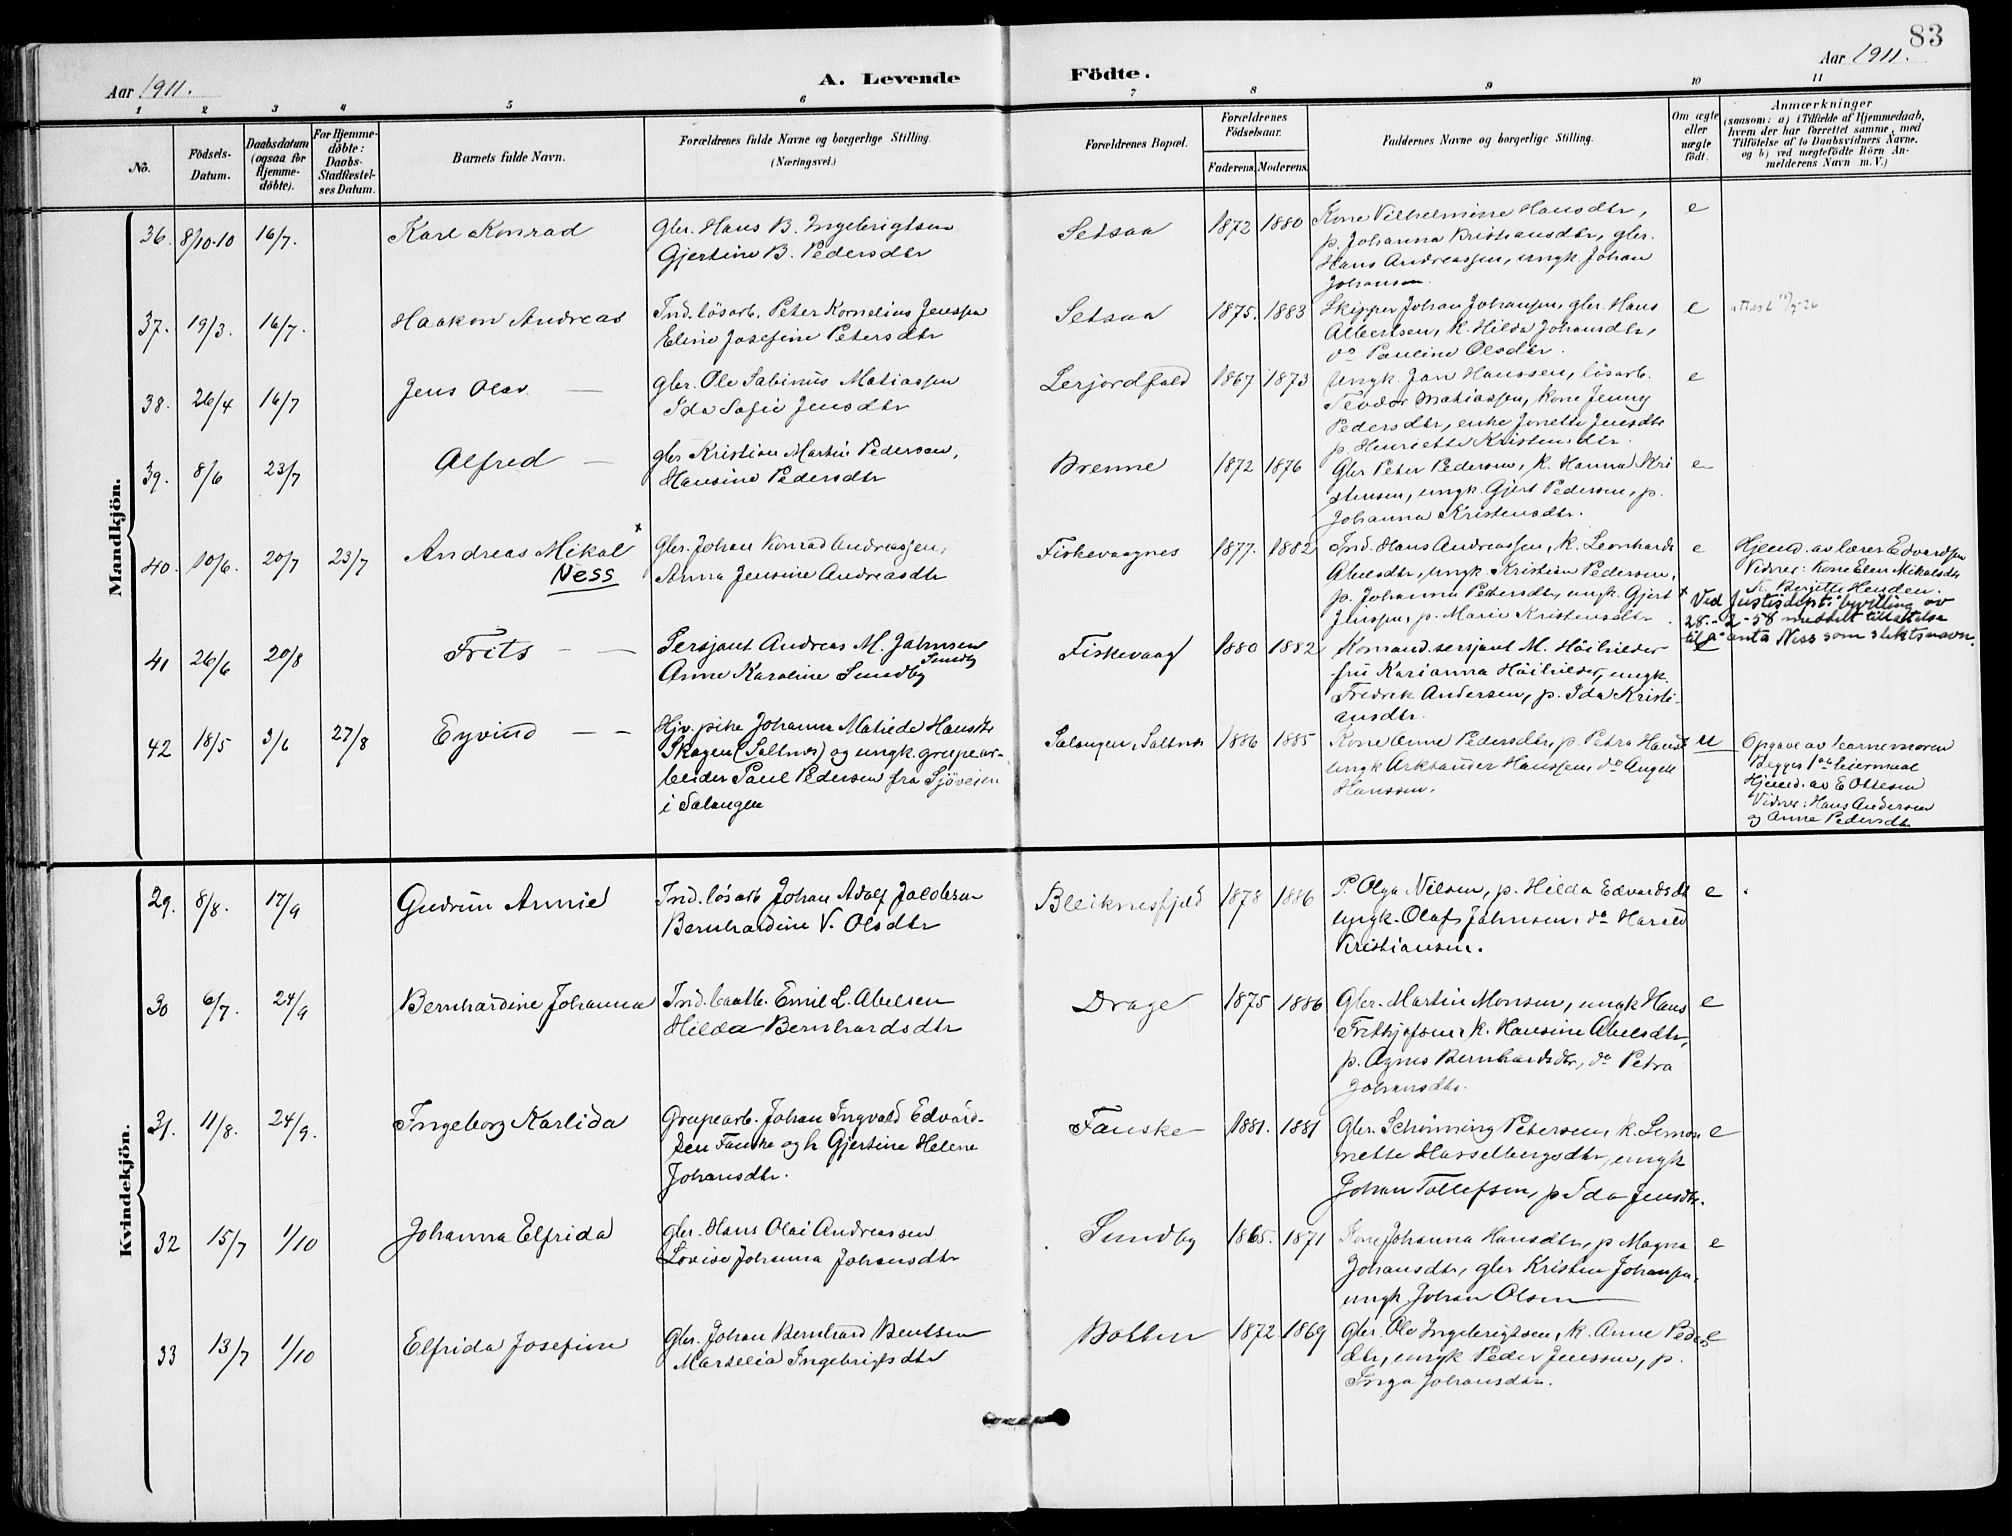 83
Aar 1911.
A. Levende Födte.
Aar 1911.
1 2 3 4 5 6 7 8 9 10 11
No.
Födsels-
Datum.
Daabsdatum
(ogsaa for
Hjemme-
döbte).
For Hjemme-
döbte:
Daabs-
Stadfæstel-
ses Datum.
Barnets fulde Navn.
Forældrenes fulde Navne og borgerlige Stilling.
(Næringsvei.)
Forældrenes Bopæl.
Forældrenes
Födselsaar.
Faderens. Moderens.
Faddernes Navne og borgerlige Stilling.
Om ægte
eller
uægte
födt.
Anmærkninger
(saasom: a) i Tilfælde af Hjemmedaab,
hvem der har forrettet samme, med
Tilföielse af to Daabsvidners Navne,
og b) ved uægtefödte Börn An-
melderens Navn m. V.)
Mandkjön.
36. 8/10-10 16/7. Karl Konrad
Gbr. Hans B. Ingebrigtsen
Gjertine B. Pedersdtr
Setsaa 1872 1880
Kone Vilhelmine Hansdtr,
p. Johanna Kristiansdtr, gbr.
Hans Andreassen, ungk. Johan
Johansen.
e
37. 19/3. 16/7. Haakon Andreas
Ind. lösarb. Peter Kornelius Jenssen
Eline Josefine Petersdtr
Setsaa 1875. 1883
Skipper Johan Johansen, gbr. Hans
Albertsen, k. Hilda Johansdtr,
do Pauline Olsdtr.
e
38. 26/4 16/7 Jens Olav —
gbr. Ole Sabinus Matiassen
Ida Sofie Jensdtr
Lerjordfald 1867 1873
Ungk. Jan Hanssen, lösarb.
Teodor Matiassen, Kone Jenny
Pedersdtr, enke Jonette Jensdtr
p. Henriette Kristensdtr.
e
39. 8/6 23/7 Alfred —
gbr Kristian Martin Pedersen,
Hansine Pedersdtr
Brenne 1872 1876
Gbr Peter Pedersen, k. Hanna Kri
stensen, ungk. Gjert Pedersen, p.
Johanna Kristensdtr.
e
40. 10/6. 20/7 23/7 Andreas Mikal x
Ness
Gbr. Johan Konrad Andreassen,
Anna Jensine Andreasdtr
Fiskevaagnes 1877. 1882
Ind. Hans Andreassen, k. Leonharda
Abelsdtr, ungk. Kristian Pedersen,
p. Johanna Petersdtr, ungk. Gjert
Jenssen, p. Marie Kristensdtr.
e
Hjemd. av lærer Edvardsen
Vidner: Kone Elen Mikalsdtr
Fr. Bergitte Henden.
x Ved Justisdept.s bevilling av
28-2-58 meddelt tillatelse
til å anta Ness som slektsnavn.
41 26/6 20/8 Frits — —
Sersjant Andreas M. Jahnsen
Sundby
Anne Karoline Sundby
Fiskevaag 1880 1882
Komand.sersjant M. Höihilder
fru Karianna Höihilder, ungk.
Fredrik Andersen, p. Ida Kristi-
ansdtr.
e
42 18/5 3/6 27/8 Eyvind — —
Hjv. pike Johanna Matilde Hansdtr
Skogen (Saltnes) og ungk. grupear-
beider Paul Pedersen fra Sjöveien
i Salangen
Salangen, Saltnes 1886 1885
Kone Anne Pedersdtr, p. Petra Hansd.
ungk Arksander Hanssen, do Angell
Hanssen.
u
Opgave av barnemoren
Begges 1ste leiermaal
Hjemd. av E Ottesen
Vidner: Hans Andersen
og Anne Pedersdtr
Kvindekjön.
29. 8/8. 17/9 Gudrun Annie
Ind. lösarb Johan Adolf Jacobsen
Bernhardine V. Olsdtr
Bleiknesfjeld 1878 1886
P. Olga Nilsen, p. Hilda Edvardsdtr
ungk. Olaf Jahnsen, do Harald
Kristiansen.
e
30 6/7. 24/9 Bernhardine Johanna
Ind. baatb. Emil L. Abelsen
Hilda Bernhardsdtr
Drage 1875 1886
Gbr. Martin Monsen, ungk Hans
Frithjofsen, k. Hansine Abelsdtr,
p. Agnes Bernhardsdtr, do Petra
Johansdtr.
e
31. 11/8. 24/9. Ingeborg Narlida
Grupearb. Johan Ingvald Edvard-
sen Fauske og h Gjertine Helene
Johansdtr.
Fauske 1881. 1881
Gbr. Schönning Petersen, k. Simo
nette Hasselbergsdtr, ungk
Johan Tollefsen, p Ida Jensdtr.
e
32 15/7 1/10 Johanna Elfrida
gbr. Hans Olai Andreassen
Lovise Johanna Johansdtr
Sundby 1865. 1871
Kone Johanna Hansdtr, p Magna
Johansdtr, gbr Kristen Johansen,
ungk. Johan Olsen
e
33 13/7 1/10 Elfrida Josefine
Gbr. Johan Bernhard Bentsen
Marselia Ingebrigtsdtr
Botten 1872 1869
Gbr. Ole Ingebrigtsen, k. Anne Peders
dtr, ungk Peder Jenssen, p.
Inga Johansdtr.
e